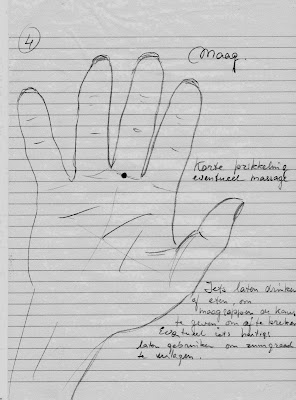 4
Maag.
Korte prikkeling
eventueel massage
Iets laten drinken
of eten, om
maagsappen de kans
te geven om af te breken
Eventueel iets hartigs
laten gebruiken om zuurgraad
te verlagen.